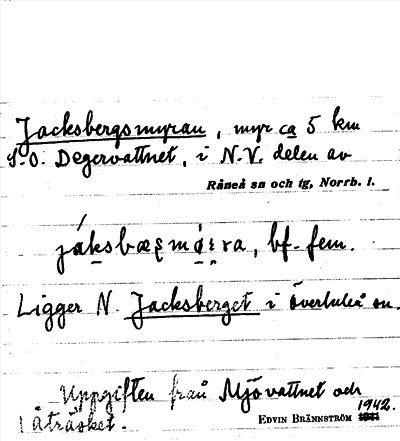 Jacksbergsmyran, myr ca 5 km
S.O. Degervattnet, i N.V. delen av
Råneå sn och tg, Norrb. l.
bf. fem.
Ligger N. Jacksberget i Överluleå sn.
Uppgiften från Mjövattnet och
1942.
Åträsket.
EDVIN BRÄNNSTRÖM